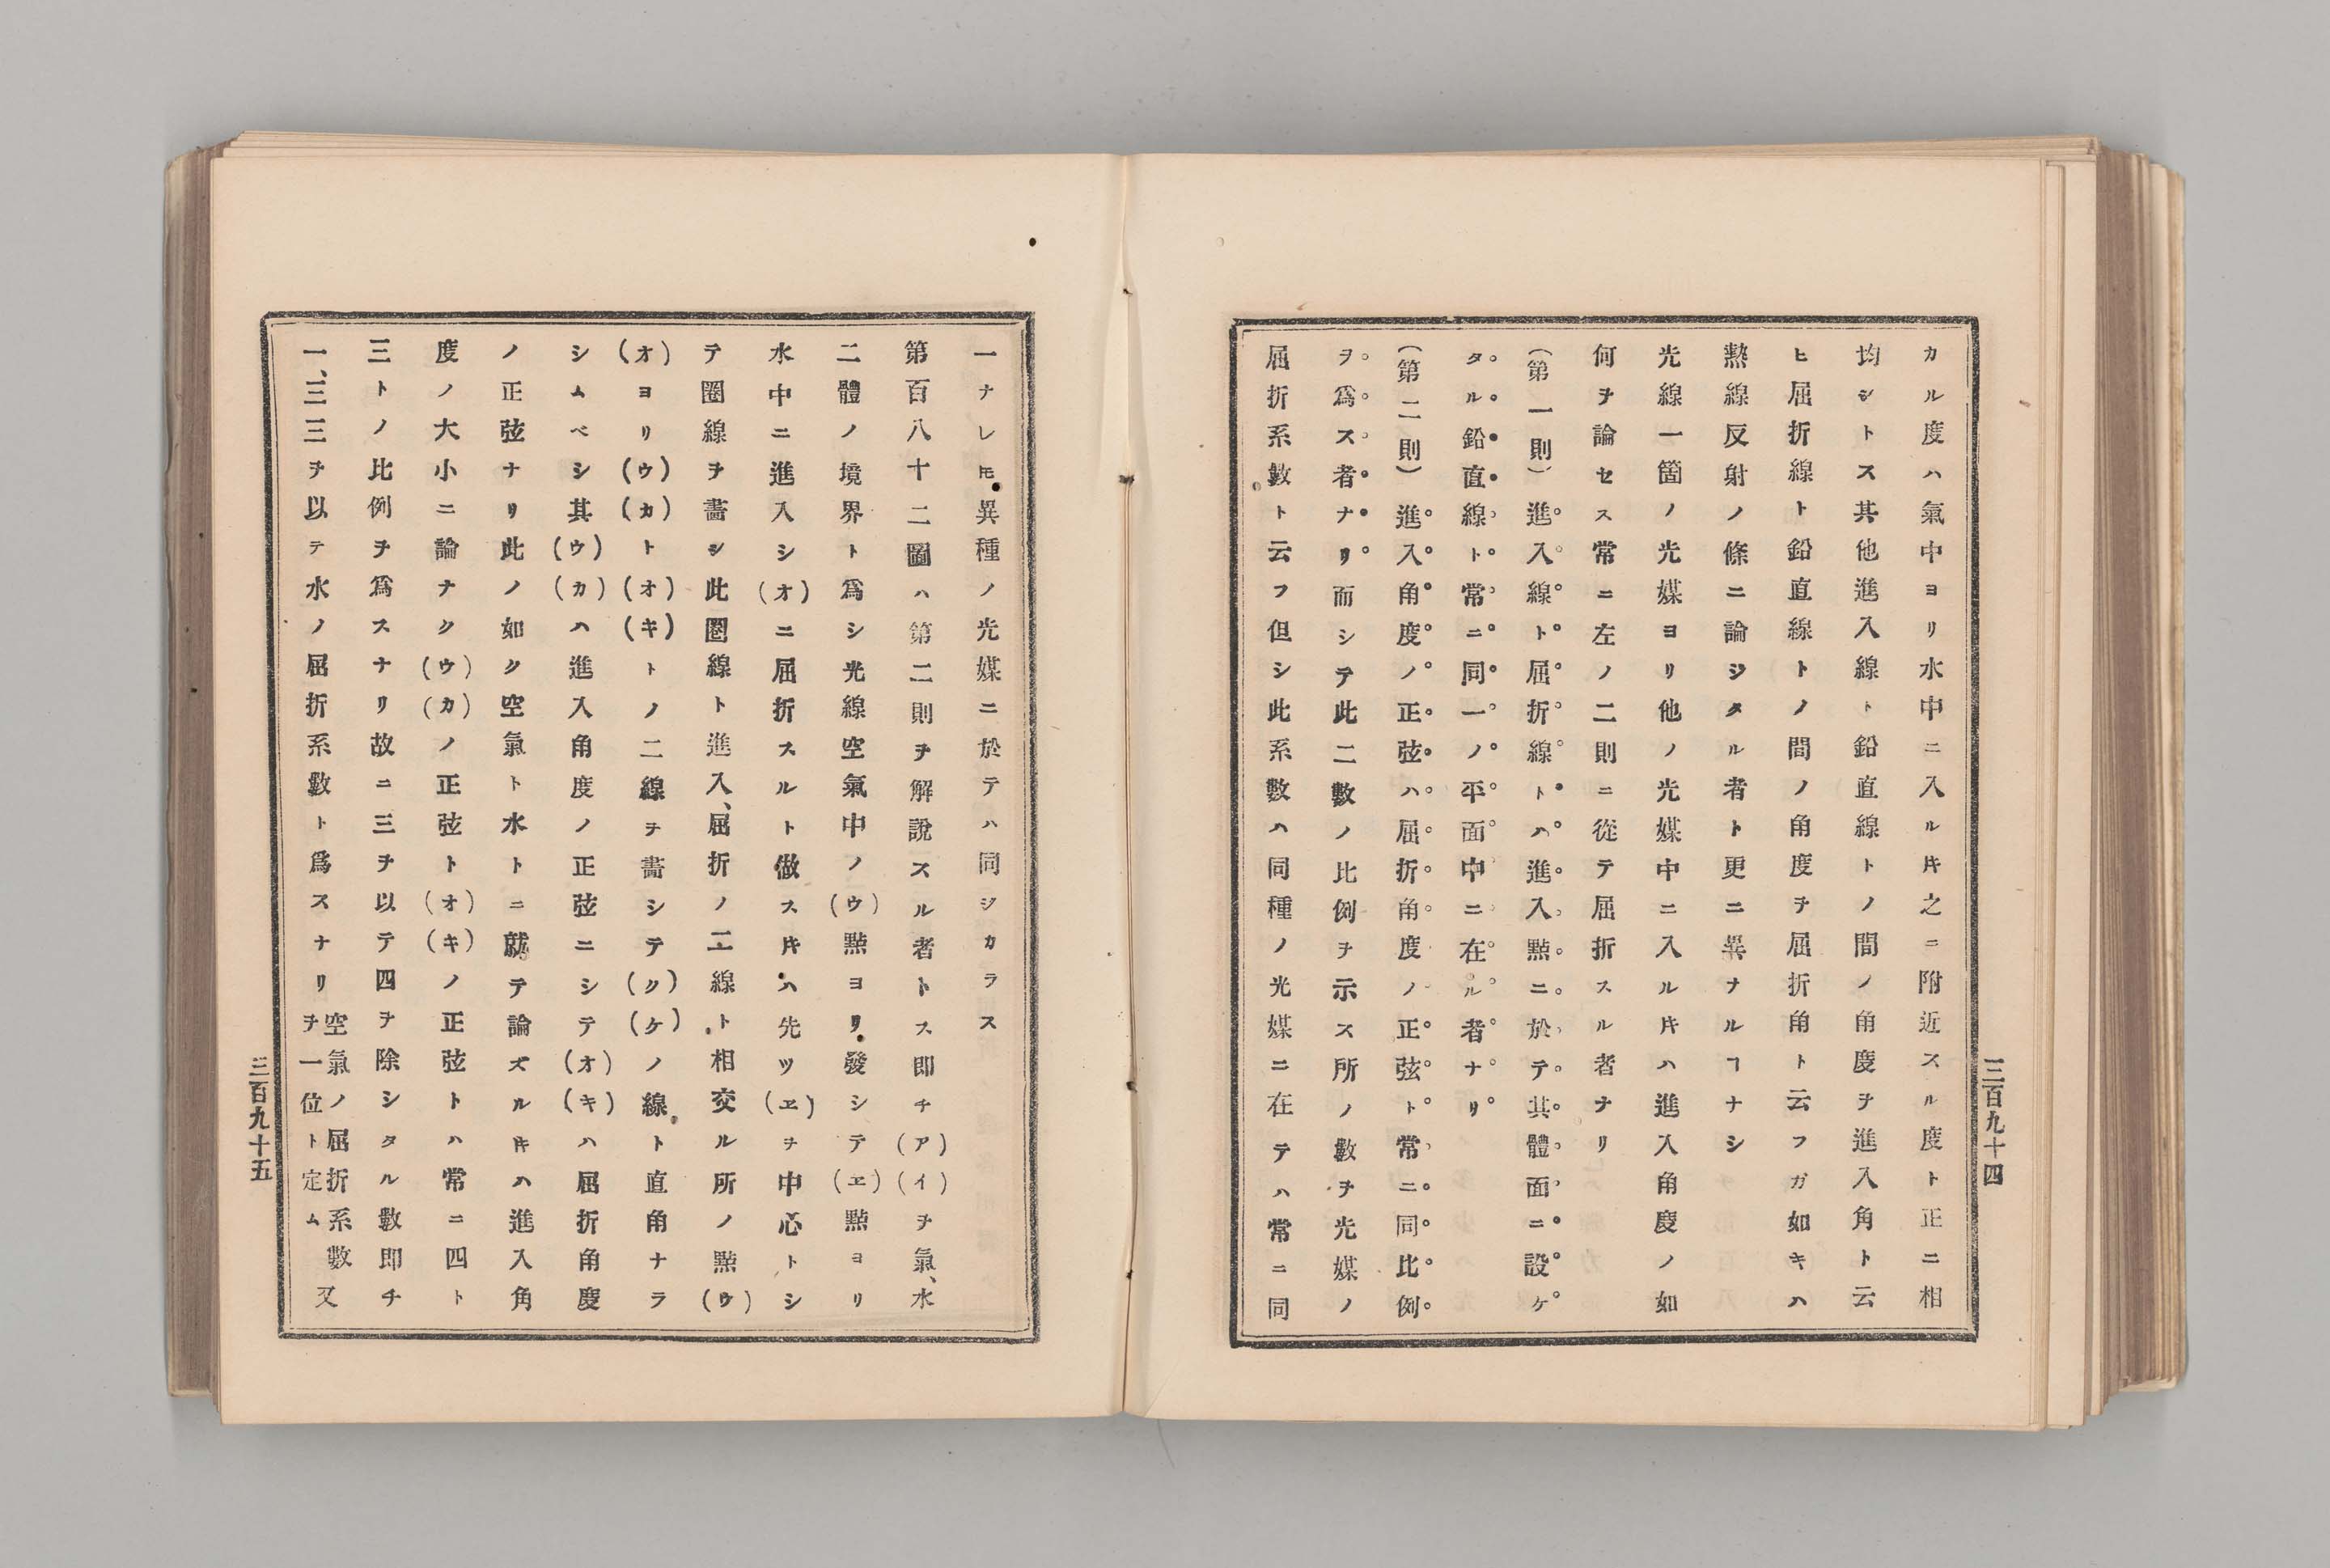 カル度ハ氣中ヨリ水中ニ入ル𪜈之ニ附近スル度ト正ニ相
均シトス其他進入線ト鉛直線トノ間ノ角度ヲ進入角ト云
ヒ屈折線ト鉛直線トノ間ノ角度ヲ屈折角ト云フガ如キハ
熱線反射ノ條ニ論ジタル者ト更ニ異ナルヿナシ
光線一箇ノ光媒ヨリ他ノ光媒中ニ入ル𪜈ハ進入角度ノ如
何ヲ論セス常ニ左ノ二則ニ從テ屈折スル者ナリ
(第一則)進入線ト屈折線トハ進入點ニ於テ其體面ニ設ケ
タル鉛直線ト常ニ同一ノ平面中ニ在ル者ナリ
(第二則)進入角度ノ正弦ハ屈折角度ノ正弦ト常ニ同比例
ヲ爲ス者ナリ而シテ此二數ノ比例ヲ示ス所ノ數ヲ光媒ノ
屈折系數ト云フ但シ此系數ハ同種ノ光媒ニ在テハ常ニ同
三百九十四
一ナレ𪜈異種ノ光媒ニ於テハ同ジカラス
第百八十二圖ハ第二則ヲ解說スル者トス即チ(ア)(イ)ヲ氣、水
二體ノ境界ト爲シ光線空氣中ノ(ウ)點ヨリ發シテ(ヱ)點ヨリ
水中ニ進入シ(オ)ニ屈折スルト做ス𪜈ハ先ツ(ヱ)ヲ中心トシ
テ圈線ヲ畵シ此圈線ト進入、屈折ノ二線ト相交ル所ノ點(ウ)
(オ)ヨリ(ウ)(カ)ト(オ)(キ)トノ二線ヲ畵シテ(ク)(ケ)ノ線ト直角ナラ
シムベシ其(ウ)(カ)ハ進入角度ノ正弦ニシテ(オ)(キ)ハ屈折角度
ノ正弦ナリ此ノ如ク空氣ト水トニ就テ論ズル𪜈ハ進入角
度ノ大小ニ論ナク(ウ)(カ)ノ正弦ト(オ)(キ)ノ正弦トハ常ニ四ト
三トノ比例ヲ爲スナリ故ニ三ヲ以テ四ヲ除シタル數即チ
一、三三ヲ以テ水ノ屈折系數ト爲スナリ空氣ノ屈折系數ヲ一位ト定ム又
三百九十五